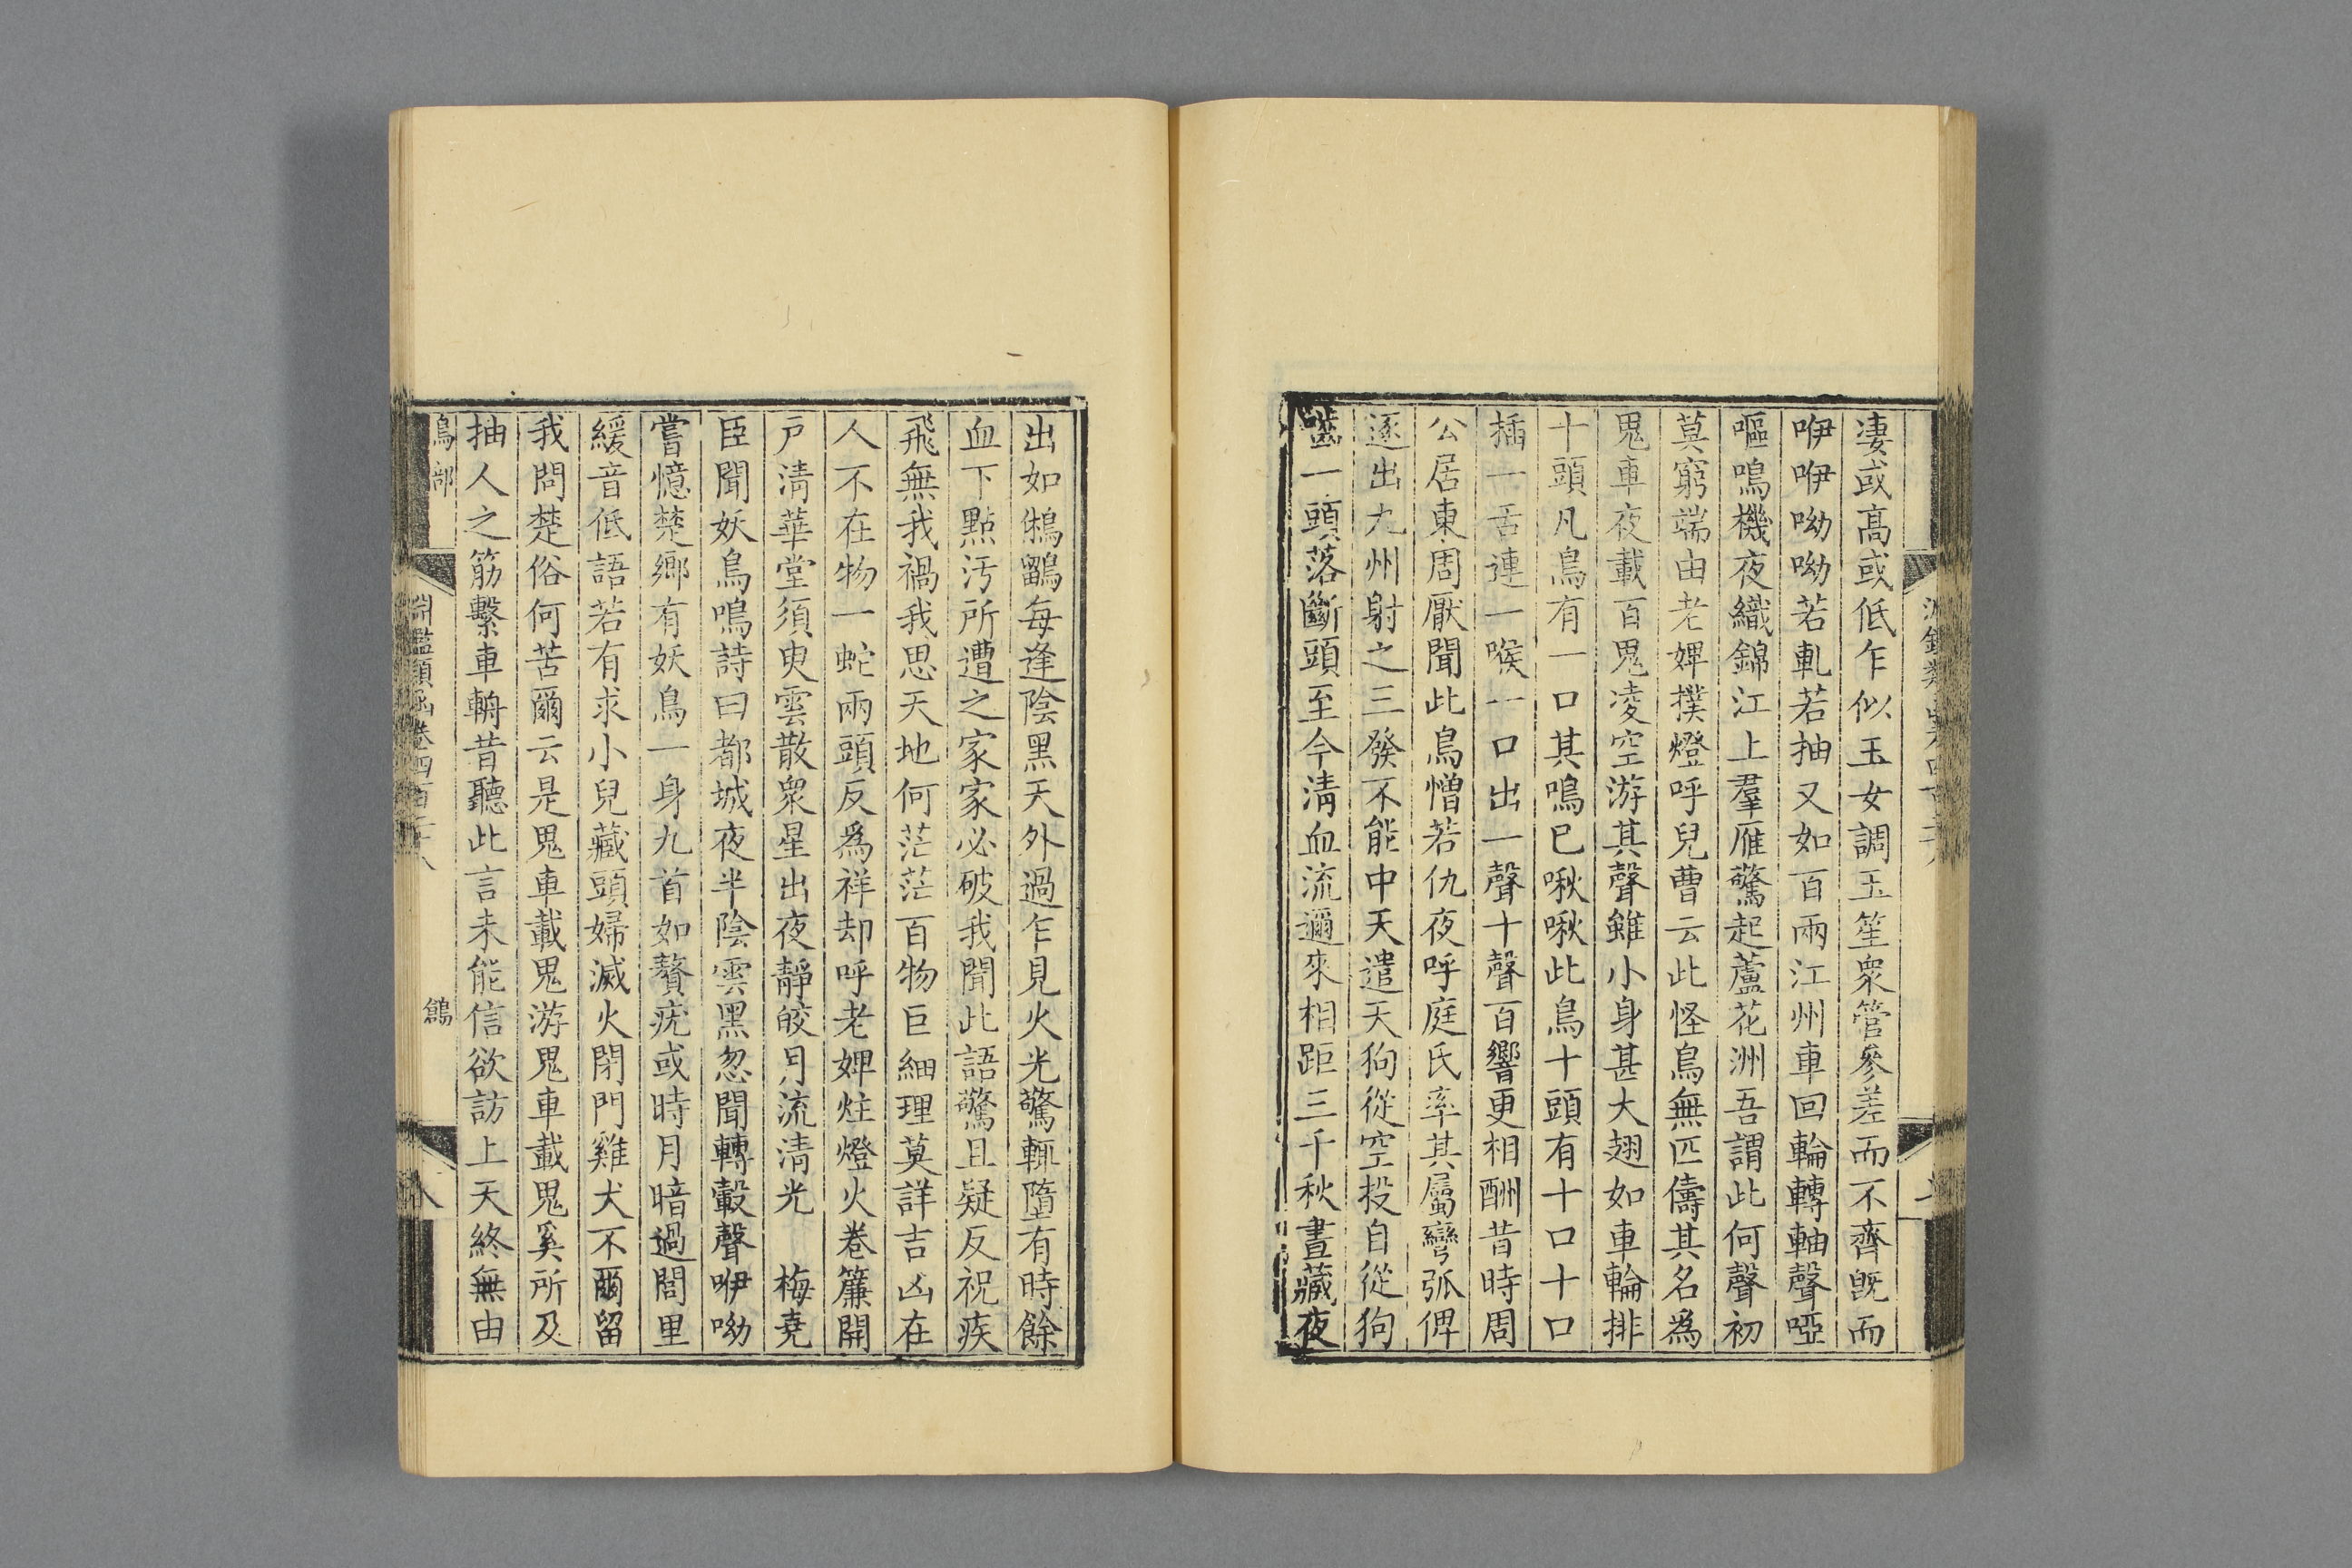 凄或高或低乍似玉女調玉笙衆管參差而不齊旣而
咿咿呦呦若軋若抽又如百兩江州車回輪轉軸聲啞
嘔鳴機夜織錦江上羣雁驚起蘆花洲吾謂此何聲初
莫窮端由老婢撲燈呼兒曹云此怪鳥無匹儔其名爲
鬼車夜載百鬼凌空游其聲雖小身甚大翅如車輪排
十頭凡鳥有一口其鳴已啾啾此鳥十頭有十口十口
插一舌連一喉一口出一聲十聲百響更相酬昔時周
公居東周厭聞此鳥憎若仇夜呼庭氏率其屬彎弧俾
逐出九州射之三發不能中天遣天狗從空投自從狗
嚙一頭落斷頭至今淸血流邇來相距三千秋晝藏夜
出如鵂鶹每逢陰黑天外過乍見火光驚輒墮有時餘
血下點汚所遭之家家必破我聞此語驚且疑反祝疾
飛無我禍我思天地何茫茫百物巨細理莫詳吉凶在
人不在物一蛇兩頭反爲祥却呼老婢炷燈火卷簾開
戶淸華堂須臾雲散衆星出夜靜皎月流淸光　梅堯
臣聞妖鳥鳴詩曰都城夜半陰雲黑忽聞轉轂聲咿呦
嘗憶楚鄉有妖鳥一身九首如贅疣或時月暗過閭里
緩音低語若有求小兒藏頭婦滅火閉門雞犬不爾留
我問楚俗何苦爾云是鬼車載鬼游鬼車載鬼奚所及
抽人之筋繫車輈昔聽此言未能信欲訪上天終無由
鳥部
淵鑑類函卷四百二十八
鶬
八